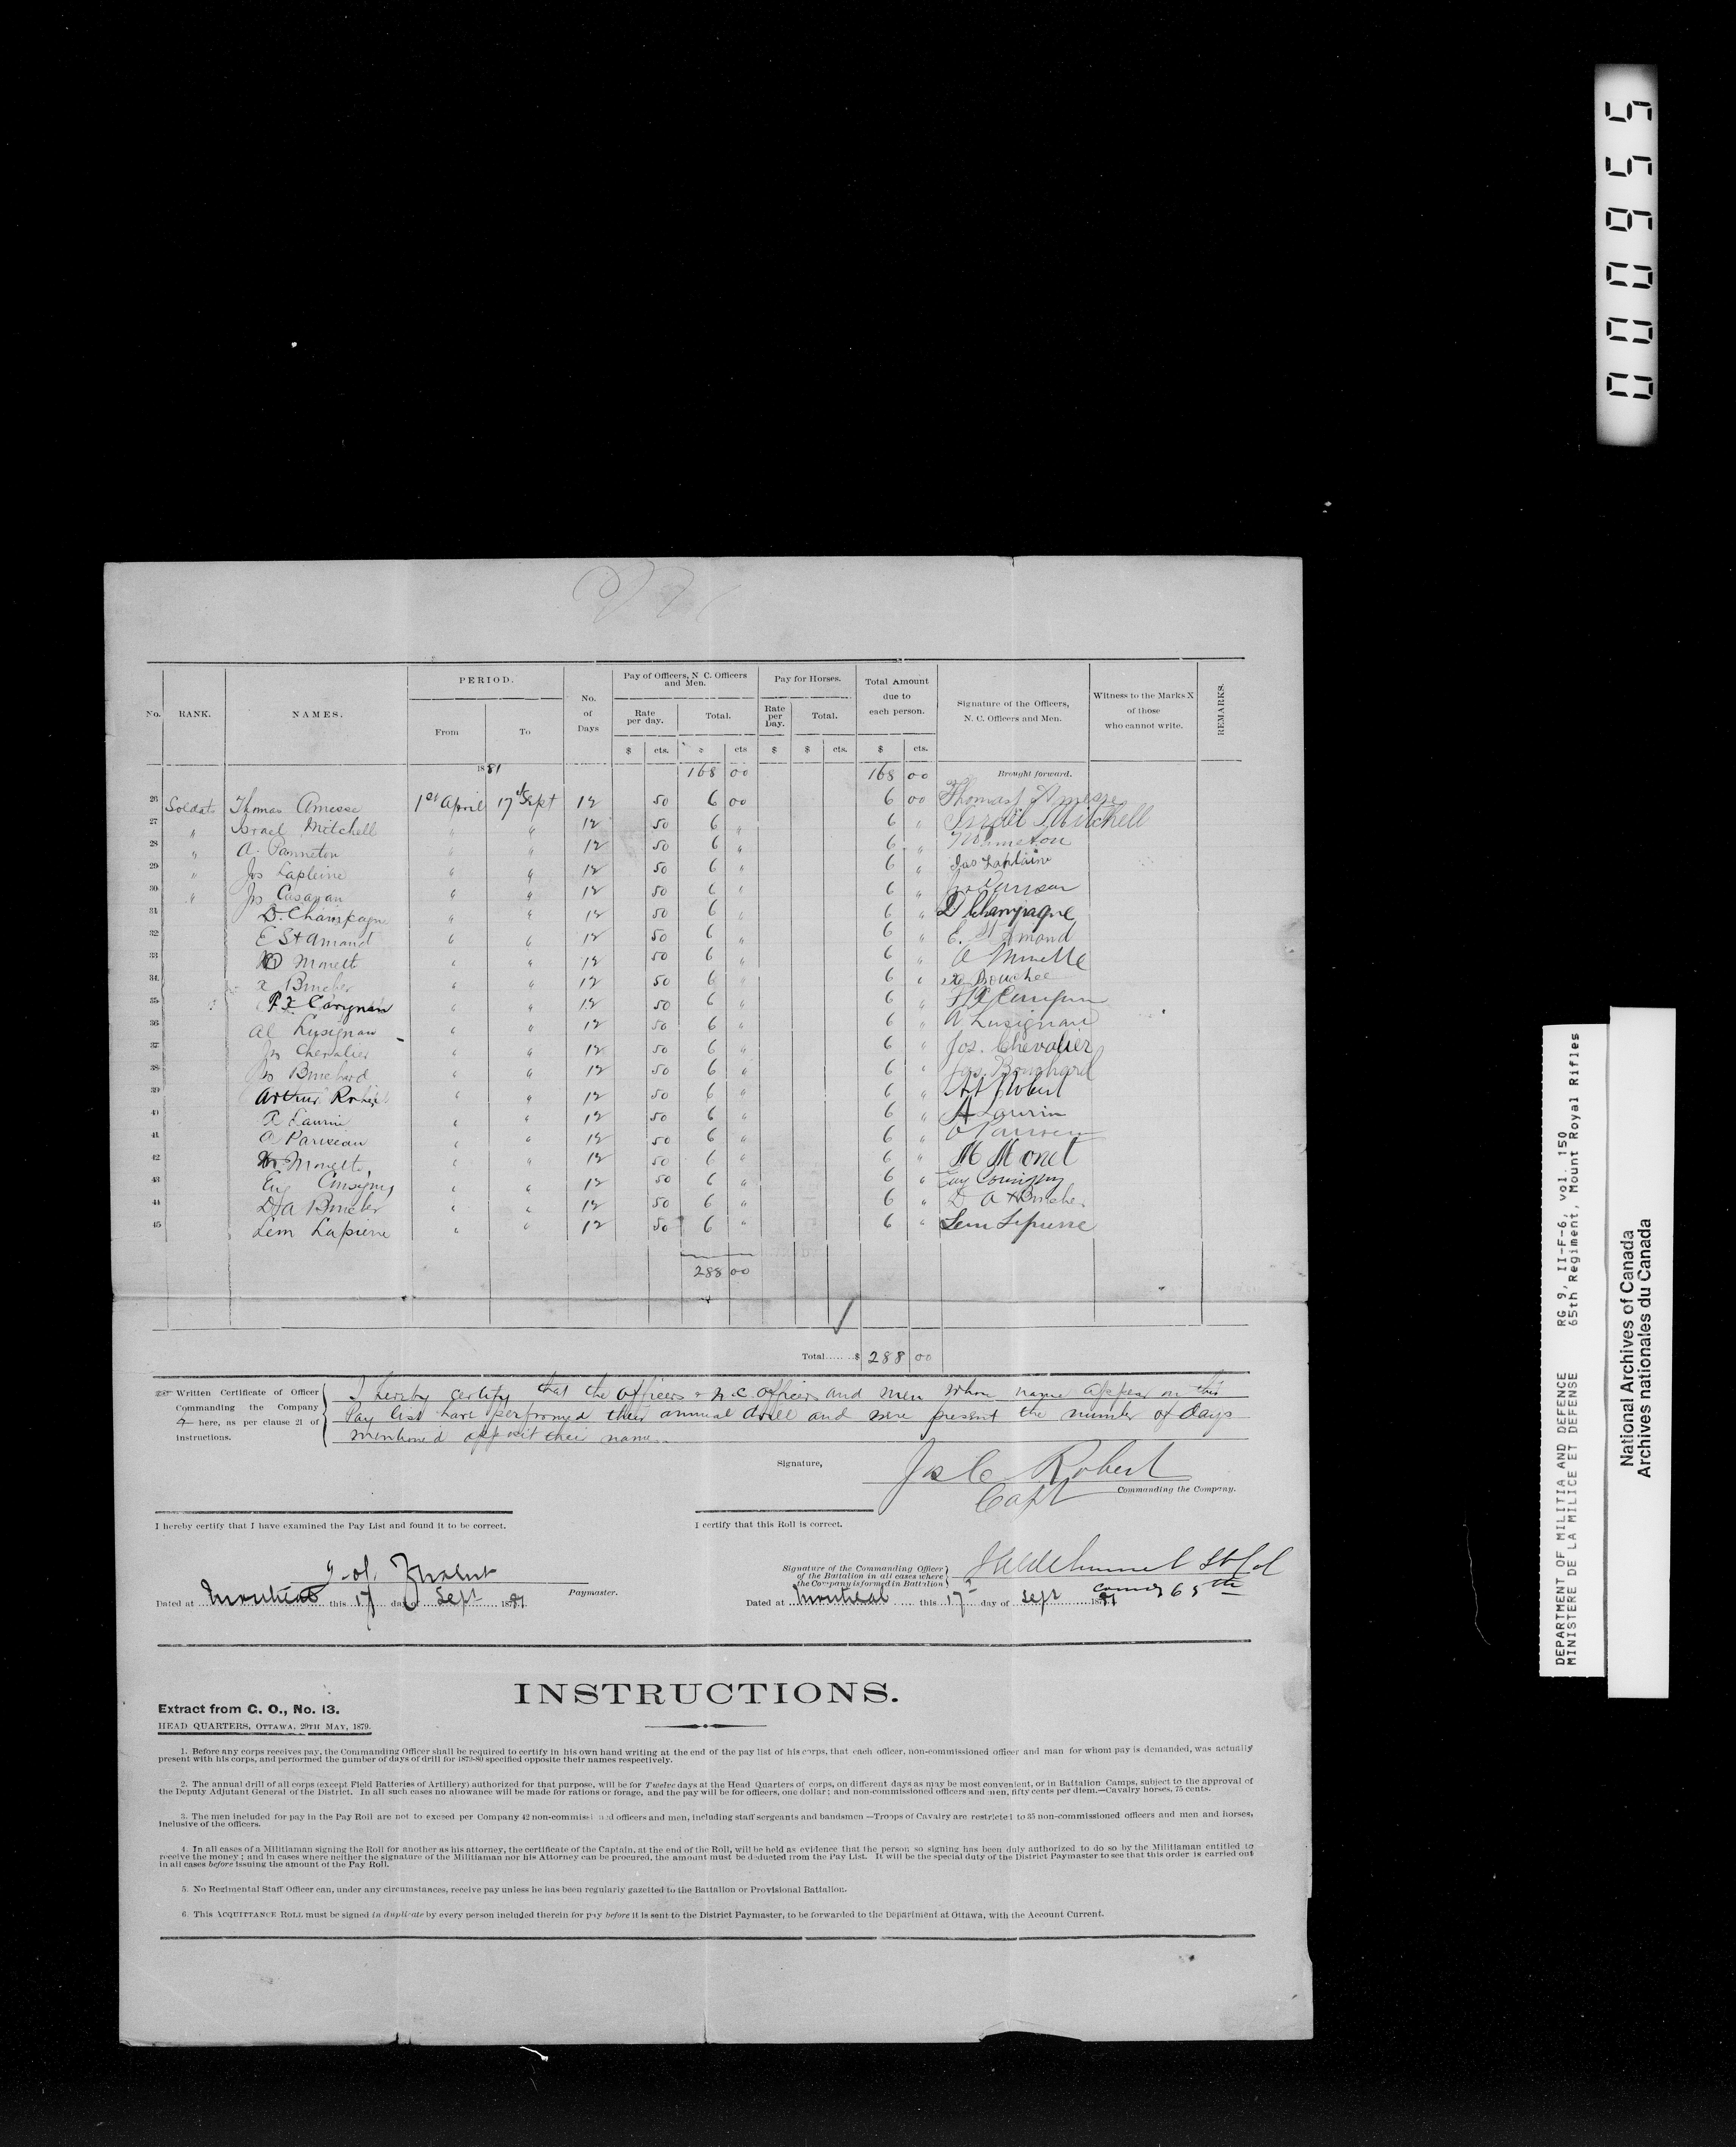 No. RANK. NAMES. PERIOD. No. of Days Pay of Officers, N. C. Officers and Men. Pay for Horses. Total Amount due to each person. Signature of the Officers, N. C. Officers and Men. Witness to the Marks X of those who cannot write. REMARKS.
From To Rate per day. Total. Rate per Day. Total.
$ cts. $ cts $ $ cts. $ cts.
1881 168 00 168 00 Brought forward.
26 Soldats Thomas Amesse 1st April 17th Sept 12 50 6 00 6 00 Thomas Amesse
27 " Israel Mitchell " " 12 50 6 " 6 " Israël Mitchell
28 " A. Panneton " " 12 50 6 " 6 "
29 " Jos Lapleine " " 12 50 6 " 6 " Jos Laplaine
30 " Jos Casavan " " 12 50 6 " 6 "
31 D. Champagne " " 12 50 6 " 6 " D Champagne
32 E St Amand " " 12 50 6 " 6 " E. St Amond
33 Monett " " 12 50 6 " 6 " A Monette
34 Boucher " " 12 50 6 " 6 "
35 F. X Carignan " " 12 50 6 " 6 "
36 Al Lusignan " " 12 50 6 " 6 " A Lusignan
37 Jos Chevalier " " 12 50 6 " 6 " Jos. Chevalier
38 Jos Bouchard " " 12 50 6 " 6 " Jos. Bouchard
39 Arthur Robert " " 12 50 6 " 6 " Robert
40 Laurin " " 12 50 6 " 6 " A Laurin
41 A Pariseau " " 12 50 6 " 6 "
42 Monett " " 12 50 6 " 6 " M Monet
43 Eug " " 12 50 6 " 6 "
44 D A Boucher " " 12 50 6 " 6 " D A Boucher
45 Lem Lapierre " " 12 50 6 " 6 " Lem Lapierre
288 00
Total........$ 288 00
Written Certificate of Officer Commanding the Company here, as per clause 21 of instructions.
I hereby certify that the officers & n.c. officers and men whom name appear on this
Pay list have perfromed their annual drill and were present the number of days
mentioned opposit their name
Signature, Jos C Robert
Capt Commanding the Company.
I hereby certify that I have examined the Pay List and found it to be correct.
I certify that this Roll is correct.
Paymaster.
Signature of the Commanding Officer of the Battalion in all cases where the Company is formed in Battalion
Lt Col
Comdg 65th
Dated at Montreal this 17 day of Sept 1881
Dated at Montreal this 17 day of Sept 1881
INSTRUCTIONS.
Extract from G. O., No. 13.
HEAD QUARTERS, OTTAWA, 29TH MAY, 1879.
1. Before any corps receives pay, the Commanding Officer shall be required to certify in his own hand writing at the end of the pay list of his corps, that each officer, non-commissioned officer and man for whom pay is demanded, was actually
present with his corps, and performed the number of days of drill for 1879-80 specified opposite their names respectively.
2. The annual drill of all corps (except Field Batteries of Artillery) authorized for that purpose, will be for Twelve days at the Head Quarters of corps, on different days as may be most convenient, or in Battalion Camps, subject to the approval of
the Deputy Adjutant General of the District. In all such cases no allowance will be made for rations or forage, and the pay will be for officers, one dollar; and non-commissioned officers and men, fifty cents per diem.—Cavalry horses, 75 cents.
3. The men included for pay in the Pay Roll are not to exceed per Company 42 non-commissioned officers and men, including staff sergeants and bandsmen—Troops of Cavalry are restricted to 35 non-commissioned officers and men and horses,
inclusive of the officers.
4. In all cases of a Militiaman signing the Roll for another as his attorney, the certificate of the Captain, at the end of the Roll, will be held as evidence that the person so signing has been duly authorized to do so by the Militiaman entitled to
receive the money; and in cases where neither the signature of the Militiaman nor his Attorney can be procured, the amount must be deducted from the Pay List. It will be the special duty of the District Paymaster to see that this order is carried out
in all cases before issuing the amount of the Pay Roll.
5. No Regimental Staff Officer can, under any circumstances, receive pay unless he has been regularly gazetted to the Battalion or Provisional Battalion.
6. This ACQUITTANCE ROLL must be signed in duplicate by every person included therein for pay before it is sent to the District Paymaster, to be forwarded to the Department at Ottawa, with the Account Current.
000955
DEPARTMENT OF MILITIA AND DEFENCE RG 9, II-F-6, vol. 150
MINISTERE DE LA MILICE ET DEFENSE 65th Regiment, Mount Royal Rifles
National Archives of Canada
Archives nationales du Canada